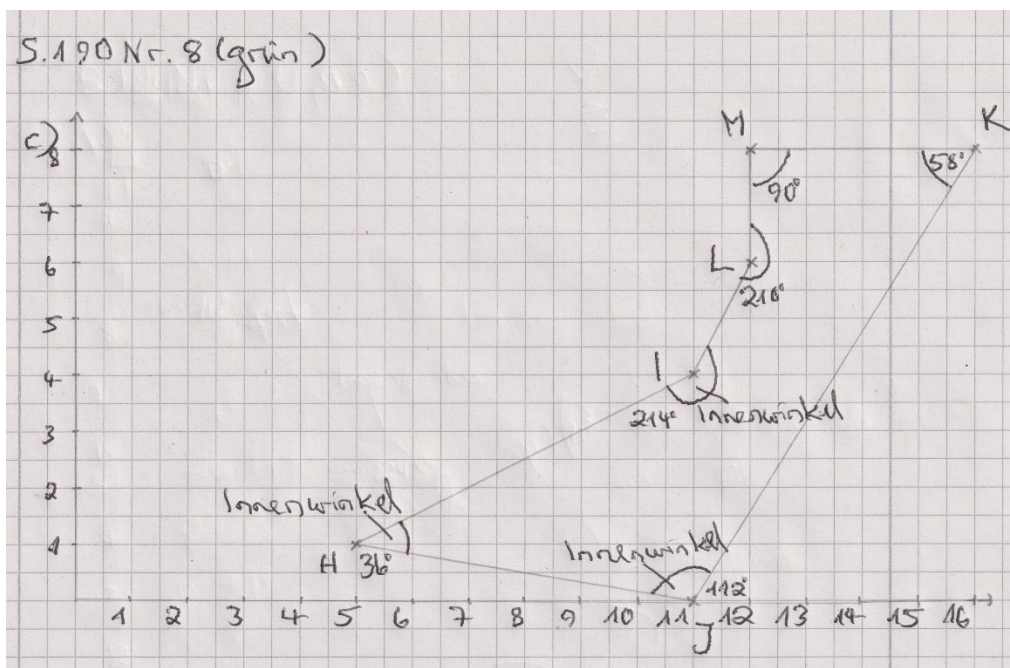 S.190 Nr. 8 (grün)
c)
M
K
8
58°
90°
7
L
6
210°
5
I
4
214° Innenwinkel
3
2
Innenwinkel
1
H 36°
Innenwinkel
112°
1 2 3 4 5 6 7 8 9 10 11 12 13 14 15 16
J